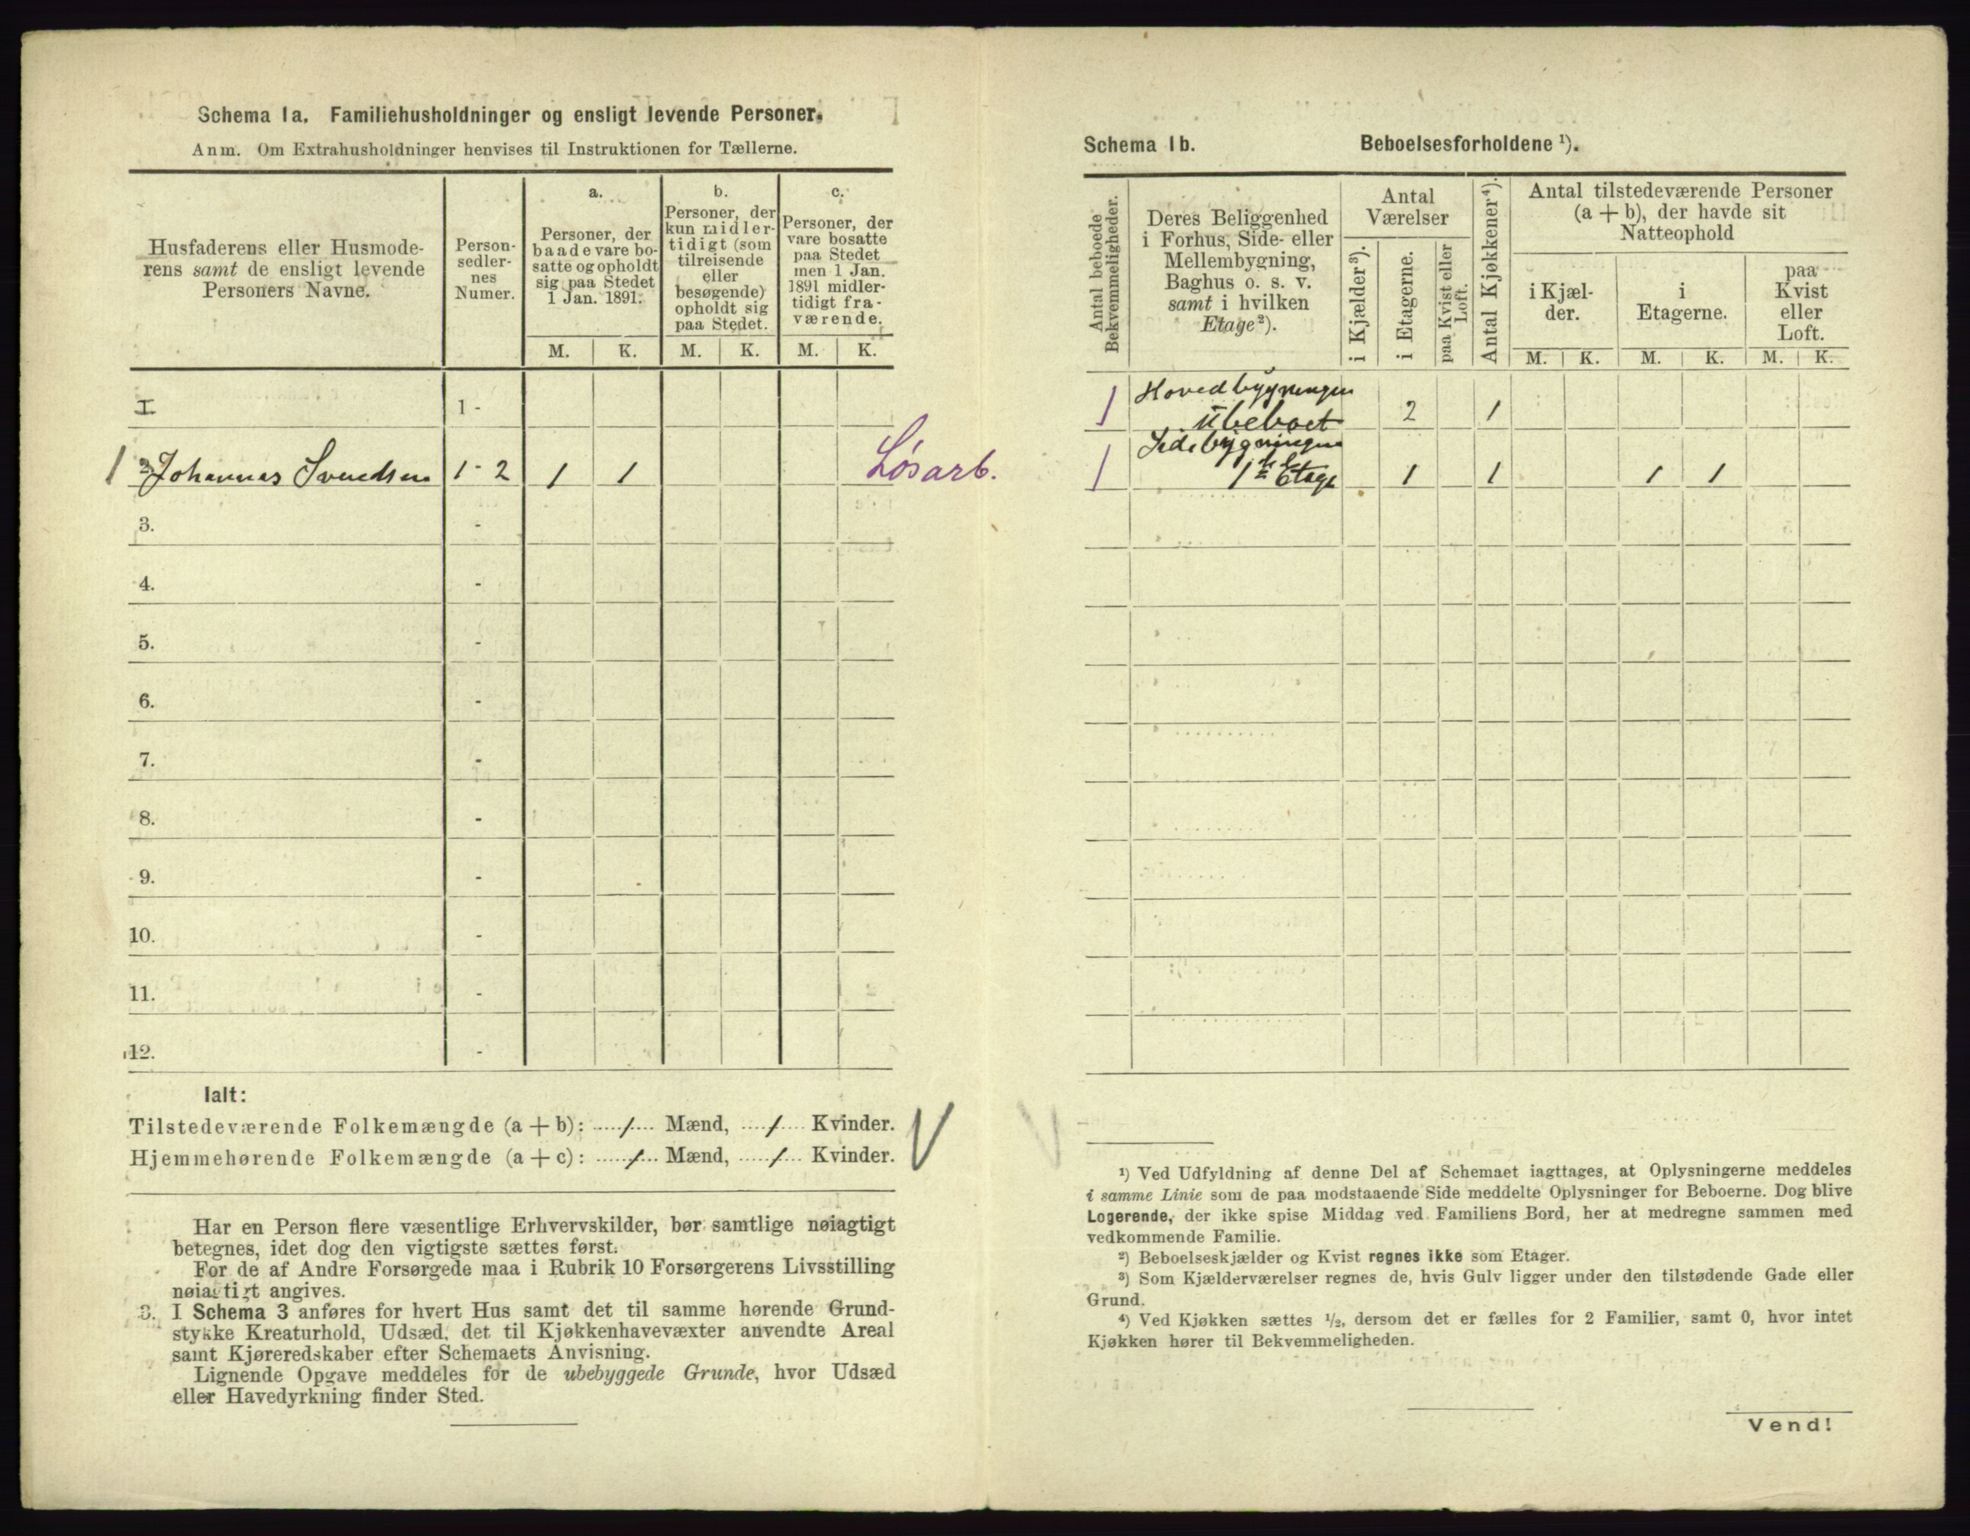 Schema 1a. Familiehusholdninger og ensligt levende Personer.
Anm. Om Extrahusholdninger henvises til Instruktionen for Tællerne.
Husfaderens eller Husmode-
rens samt de ensligt levende
Personers Navne.
Person-
sedler-
nes
Numer.
a.
Personer, der
baade vare bo-
satte og opholdt
sig paa Stedet
1 Jan. 1891.
b.
Personer, der
kun midler-
tidigt (som
tilreisende
eller
besøgende)
opholdt sig
paa Stedet.
c.
Personer, der
vare bosatte
paa Stedet
men 1 Jan.
1891 midler-
tidigt fra-
værende.
M. K. M. K. M. K.
I 1 -
1 2 Johannas Svendsen 1 - 2 1 1 Løsarb.
3. -
4. -
5. -
6. -
7. -
8. -
9. -
10. -
11. -
12. -
Ialt:
Tilstedeværende Folkemængde (a + b): 1 Mænd, 1 Kvinder.
Hjemmehørende Folkemængde (a + c): 1 Mænd, 1 Kvinder.
Har en Person flere væsentlige Erhvervskilder, bør samtlige nøiagtigt
betegnes, idet dog den vigtigste sættes først.
For de af Andre Forsørgede maa i Rubrik 10 Forsørgerens Livsstilling
nøiagtigt angives.
3. I Schema 3 anføres for hvert Hus samt det til samme hørende Grund-
stykke Kreaturhold, Udsæd, det til Kjøkkenhavevæxter anvendte Areal
samt Kjøreredskaber efter Schemaets Anvisning.
Lignende Opgave meddeles for de ubebyggede Grunde, hvor Udsæd
eller Havedyrkning finder Sted.
Schema 1b. Beboelsesforholdene ¹).
Antal beboede
Bekvemmeligheder.
Deres Beliggenhed
i Forhus, Side- eller
Mellembygning,
Baghus o. s. v.
samt i hvilken
Etage ²).
Antal
Værelser
i Kjælder ³).
i Etagerne.
paa Kvist eller
Loft.
Antal Kjøkkener ⁴).
Antal tilstedeværende Personer
(a + b), der havde sit
Natteophold
i Kjæl-
der.
i
Etagerne.
paa
Kvist
eller
Loft.
M. K. M. K. M. K.
1 Hovedbygningen
ubeboet 2 1
1 Sidebygningen
1ste Etage 1 1 1 1
¹) Ved Udfyldning af denne Del af Schemaet iagttages, at Oplysningerne meddeles
i samme Linie som de paa modstaaende Side meddelte Oplysninger for Beboerne. Dog blive
Logerende, der ikke spise Middag ved Familiens Bord, her at medregne sammen med
vedkommende Familie.
²) Beboelseskjælder og Kvist regnes ikke som Etager.
³) Som Kjælderværelser regnes de, hvis Gulv ligger under den tilstødende Gade eller
Grund.
⁴) Ved Kjøkken sættes ½, dersom det er fælles for 2 Familier, samt 0, hvor intet
Kjøkken hører til Bekvemmeligheden.
Vend!